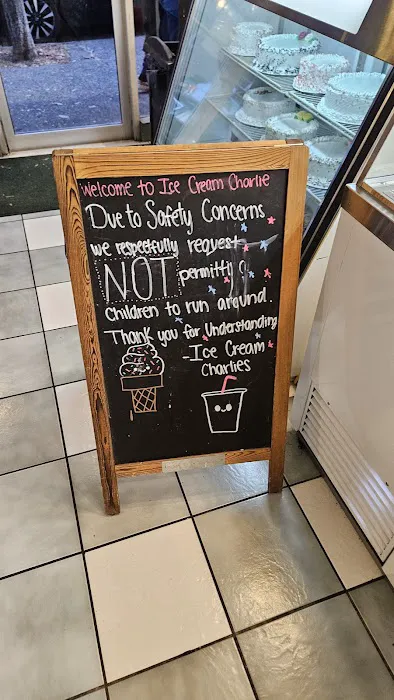 Welcome to Ice Cream Charlie
Due to Safety Concerns
we respectfully request
NOT permitting
children to run around.
Thank you for Understanding
-Ice Cream
Charlies